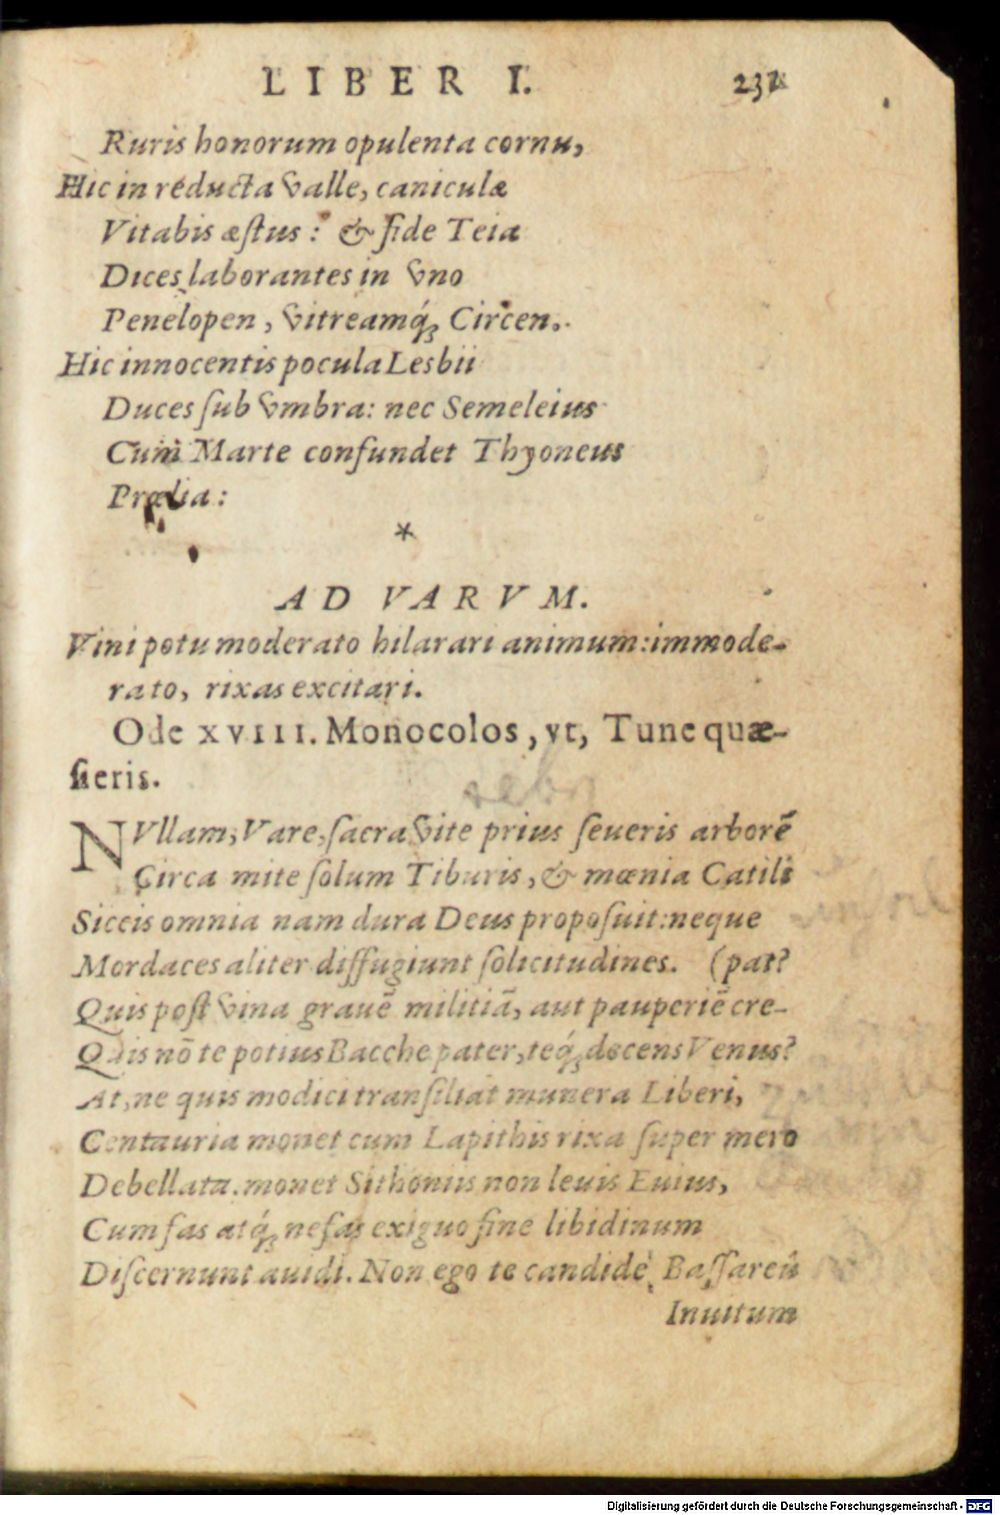 LIBER I. 231
Ruris honorum opulenta cornu,
Hic in reducta valle, caniculæ
Vitabis æſtus: & fide Teia
Dices laborantes in vno
Penelopen, vitreamq́ꝫ Circen.
Hic innocentis pocula Lesbii
Duces ſub vmbra: nec Semeleius
Cum Marte confundet Thyoneus
Prælia:
*
AD VARVM.
Vini potu moderato hilarari animum: immode-
rato, rixas excitari.
Ode XVIII. Monocolos, vt, Tu ne quæ-
ſieris.
NVllam, Vare, ſacra vite prius ſeueris arborē
Circa mite ſolum Tiburis, & mœnia Catili
Siccis omnia nam dura Deus propoſuit: neque
Mordaces aliter diffugiunt ſolicitudines. (pat?
Quis poſt vina grauē militiā, aut pauperiē cre-
Quis nō te potius Bacche pater, teq́ꝫ decens Venus?
At, ne quis modici tranſiliat munera Liberi,
Centauria monet cum Lapithis rixa ſuper mero
Debellata. monet Sithoniis non leuis Euius,
Cum fas atq́ꝫ nefas exiguo fine libidinum
Diſcernunt auidi. Non ego te candidè Baſſareû
Inuitum
Digitalisierung gefördert durch die Deutsche Forschungsgemeinschaft - DFG